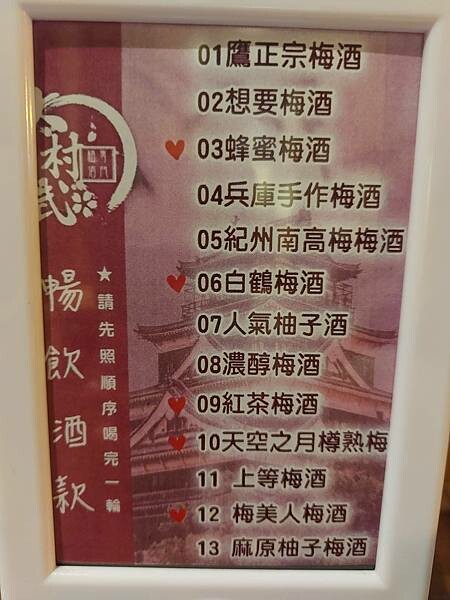 01鷹正宗梅酒
02想要梅酒
03蜂蜜梅酒
04兵庫手作梅酒
05紀州南高梅梅酒
06白鶴梅酒
07人氣柚子酒
08濃醇梅酒
09紅茶梅酒
10天空之月樽熟梅
11 上等梅酒
12 梅美人梅酒
13 麻原柚子梅酒
村
武
暢飲酒款
★請先照順序喝完一輪